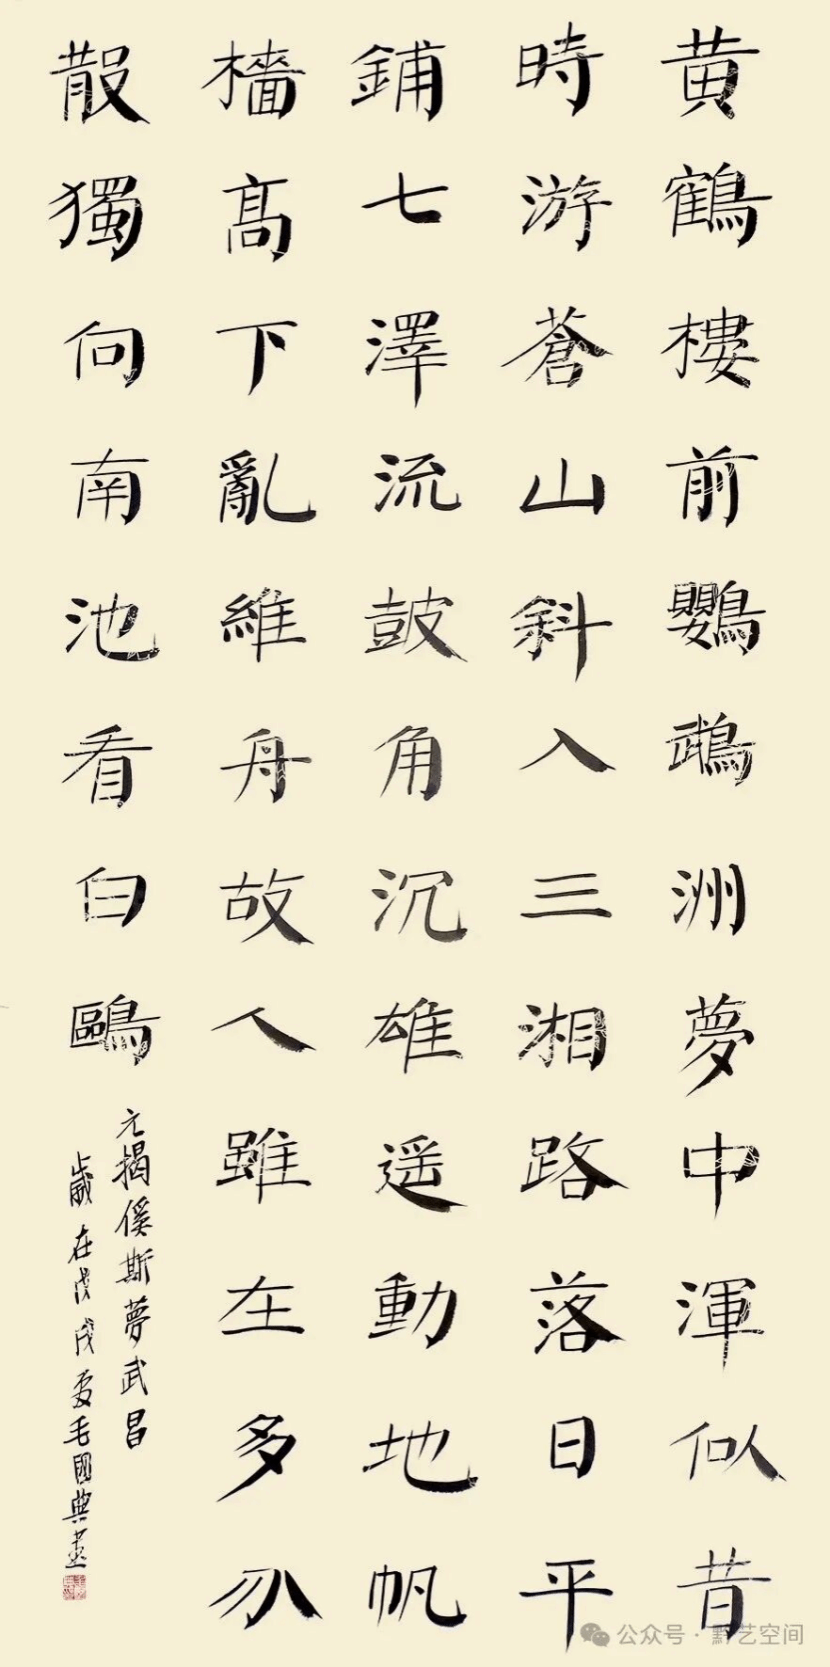 黄鶴樓前鸚鵡洲夢中渾似昔
時游蒼山斜入三湘路落日平
鋪七澤流鼓角沉雄遥動地帆
檣高下亂維舟故人雖在多分
散獨向南池看白鷗
元揭傒斯夢武昌
歲在戊戌夏毛國典書
公众号·黔艺空间